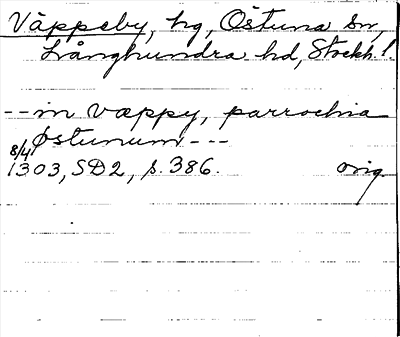 Väppeby, hg, Östuna sn,
Långhundra hd, Stockh. l.
-- in væppy, parrochia
Østunum ---
8/4 1303, SD2, s. 386. orig.